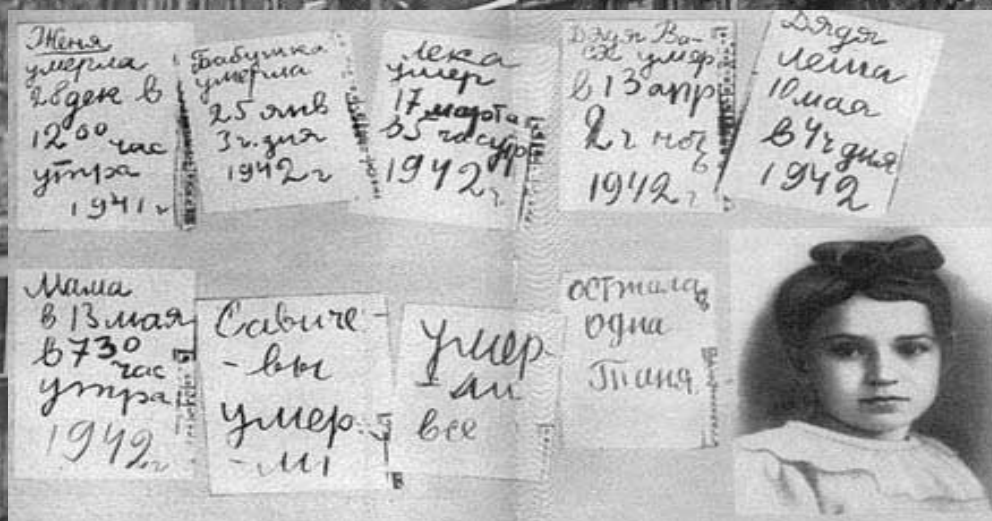 Женя
умерла
28 дек в
12⁰⁰ час
утра
1941 г
Бабушка
умерла
25 янв
3 ч. дня
1942 г
Лека
умер
17 марта
в 5 час утр
1942 г
Дядя Ва-
ся умер
в 13 апр
2 ч ноч
1942 г
Дядя
Леша
10 мая
в 4 ч дня
1942
Мама
в 13 мая
в 7 30
час
утра
1942 г
Савиче-
-вы
умер
-ли
умер
-ли
все
осталась
одна
Таня